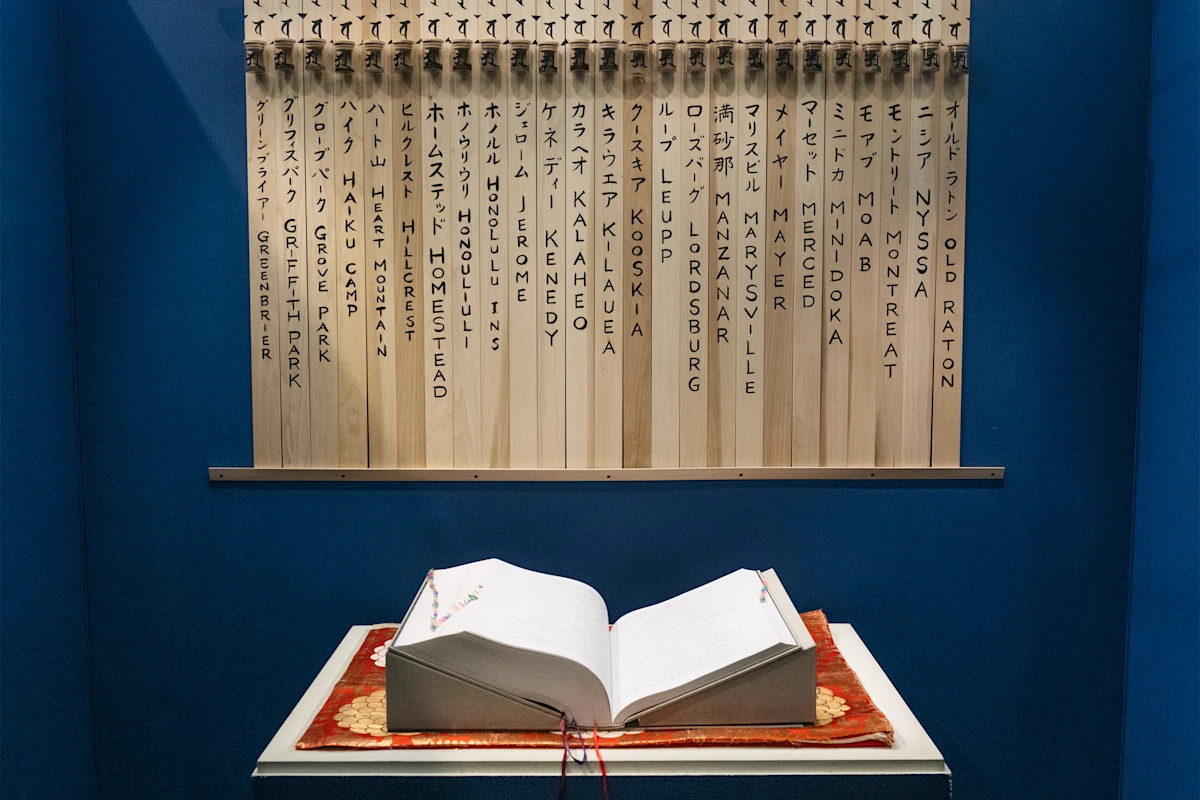 グリーンブライアー GREENBRIER
グリフィスパーク GRIFFITH PARK
グローブパーク GROVE PARK
ハイク HAIKU CAMP
ハート山 HEART MOUNTAIN
ヒルクレスト HILLCREST
ホームステッド HOMESTEAD
ホノウリウリ HONOULIULI
ホノルル HONOLULU INS
ジェローム JEROME
ケネディー KENEDY
カラヘオ KALAHEO
キラウエア KILAUEA
クースキア KOOSKIA
ループ LEUPP
ローズバーグ LORDSBURG
満砂那 MANZANAR
マリスビル MARYSVILLE
メイヤー MAYER
マーセット MERCED
ミニドカ MINIDOKA
モアブ MOAB
モントリート MONTREAT
ニシア NYSSA
オールドラトン OLD RATON